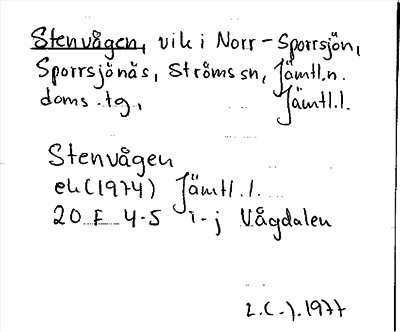 Stenvågen, vik i Norr-Sporrsjön,
Sporrsjönäs, Ströms sn, Jämtl.n.
doms.tg., Jämtl.l.
Stenvågen
ek (1974) Jämtl.l.
20 F 4-5 i-j Vågdalen
1977